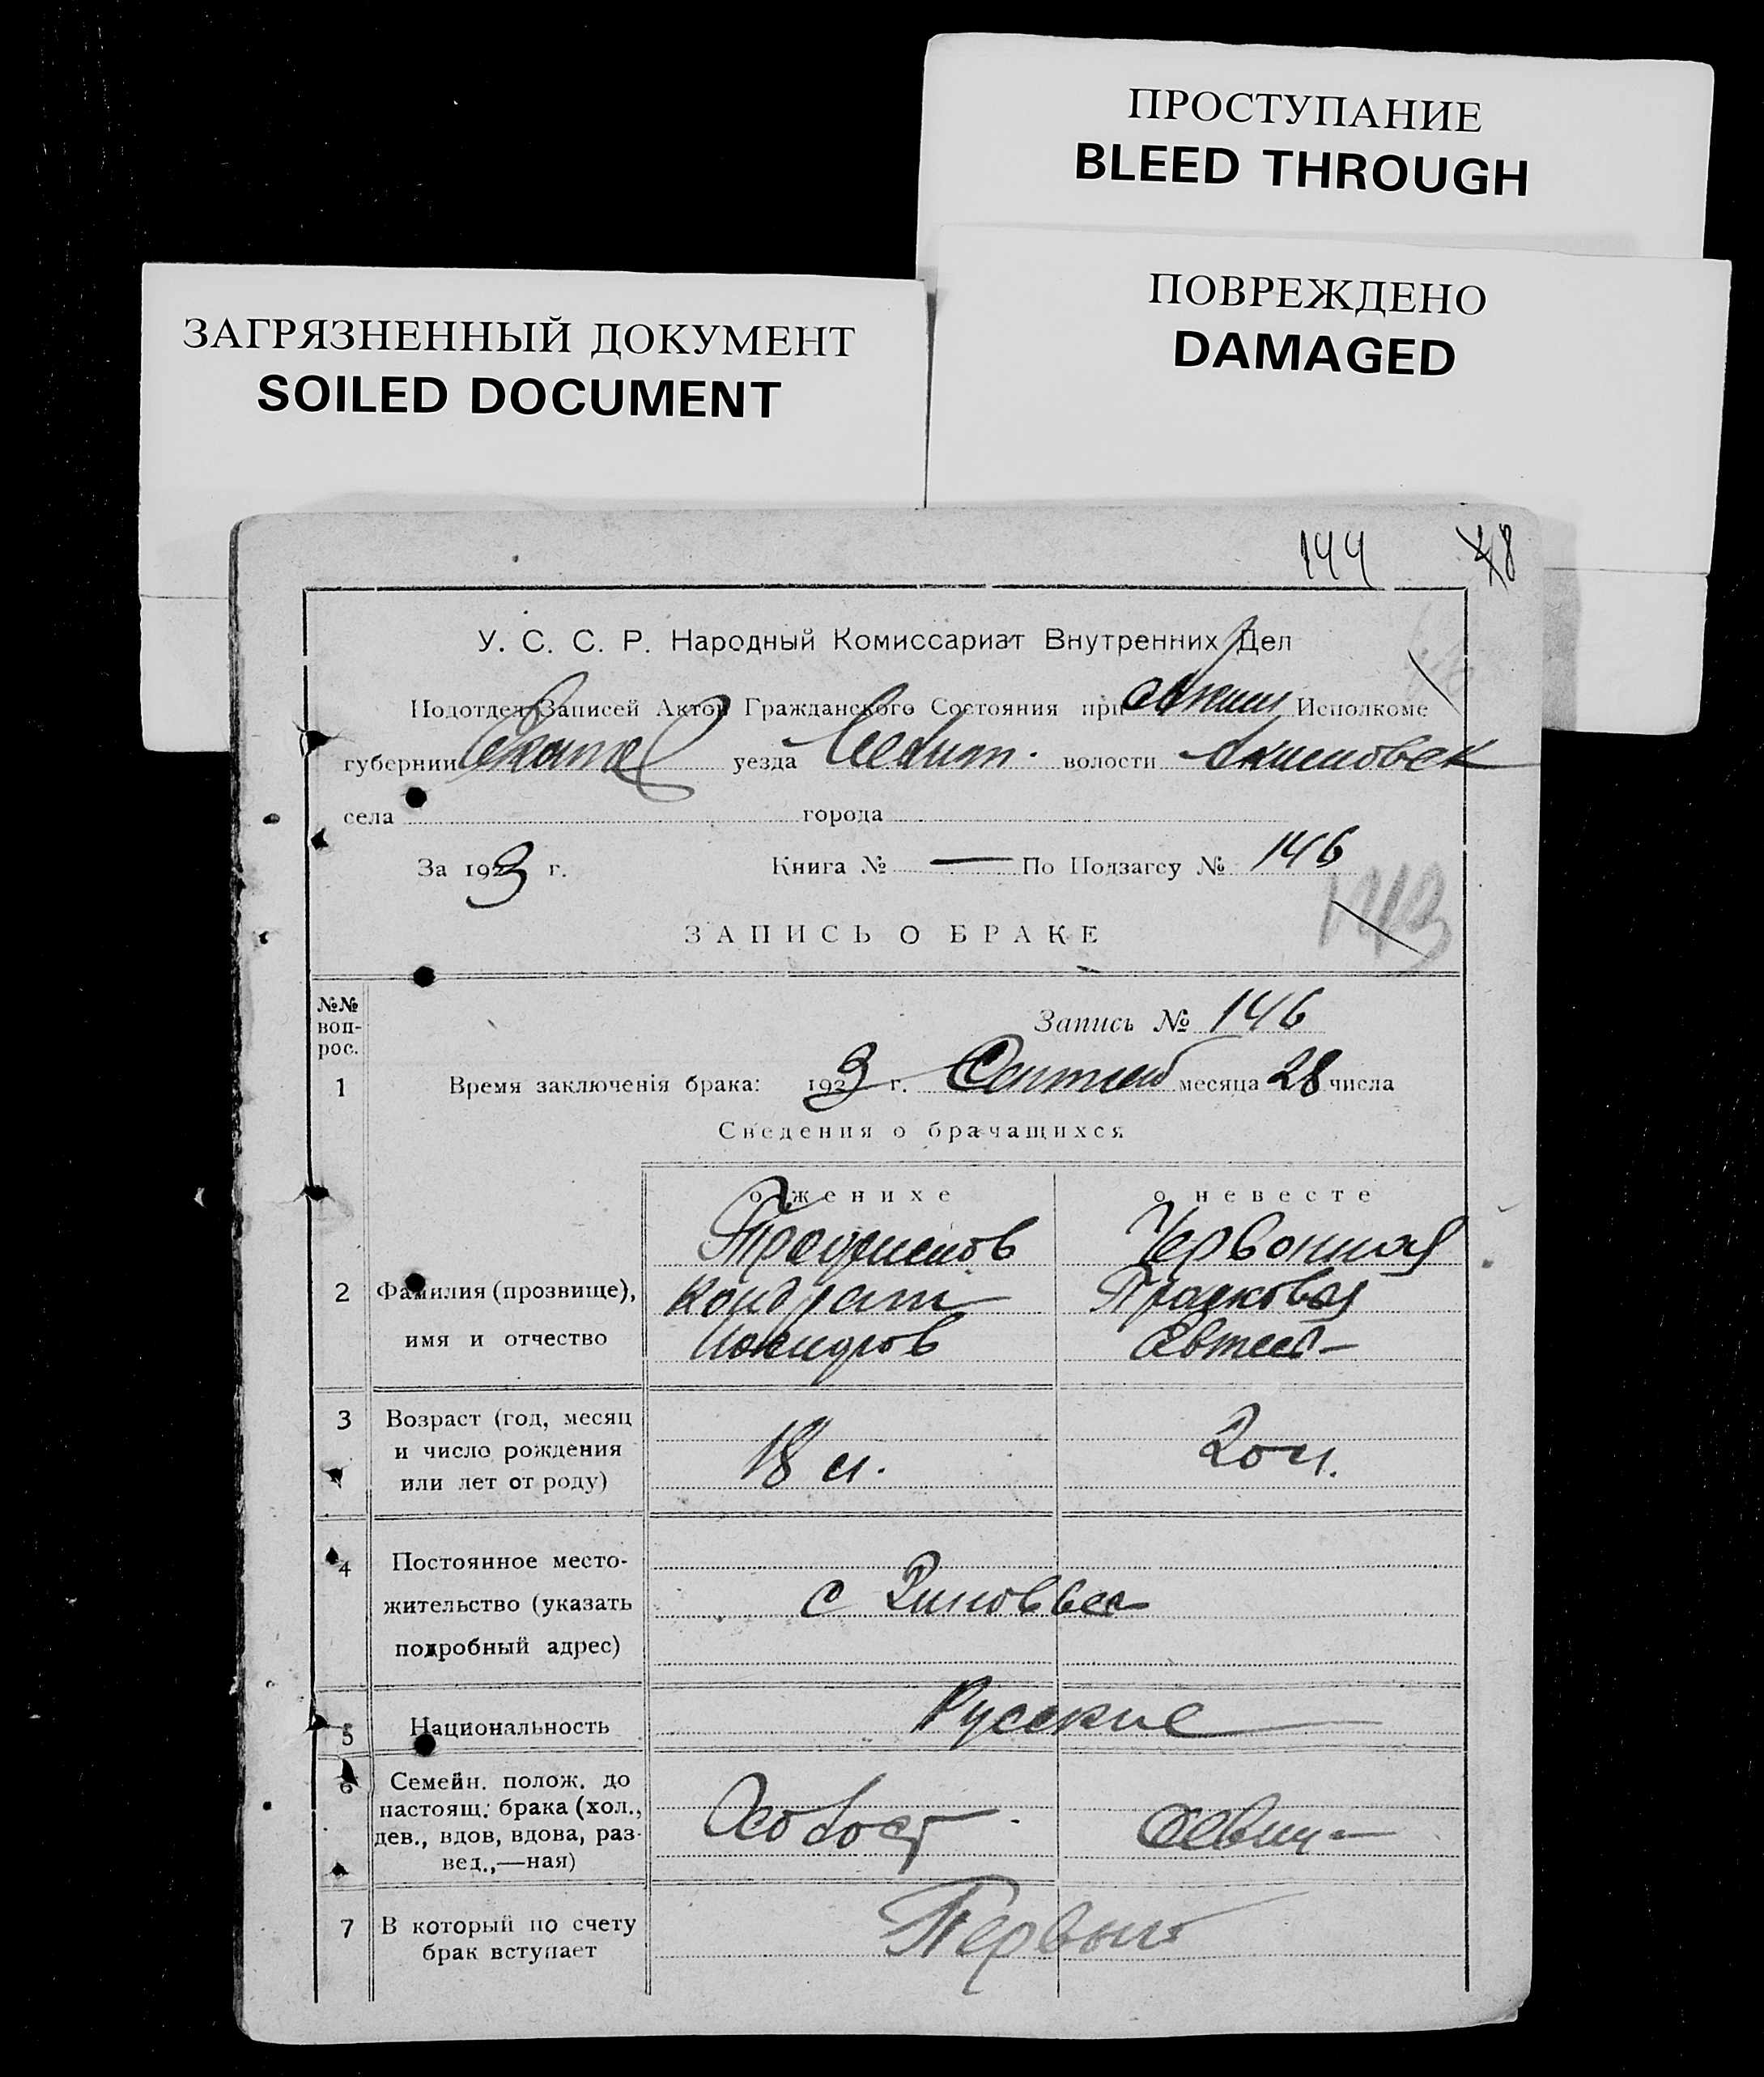 ПРОСТУПАНИЕ
BLEED THROUGH
ПОВРЕЖДЕНО
DAMAGED
ЗАГРЯЗНЕННЫЙ ДОКУМЕНТ
SOILED DOCUMENT
144
У. С. С. Р. Народный Комиссариат Внутренних Дел
Подотдел Записей Актов Гражданского Состояния при Исполкоме
губернии Екат уезда Мелит. волости Акимовск
села города
За 1923 г. Книга № — По Подзагсу № 146
143
ЗАПИСЬ О БРАКЕ
№№ воп-
рос.
Запись № 146
1 Время заключенія брака: 1923 г. Сентяб месяца 28 числа
Сведения о брачащихся
о женихе о невесте
Трофимов Червонная
2 Фамилия (прозвище), Кондрат Прасковья
имя и отчество
3 Возраст (год, месяц
и число рождения 18 л. 20 л.
или лет от роду)
4 Постоянное место-
жительство (указать с
подробный адрес)
5 Национальность Русские
6 Семейн. полож. до
настоящ. брака (хол.,
дев., вдов, вдова, раз- Холост девиц-
вед.,—ная)
7 В который по счету Первый
брак вступает